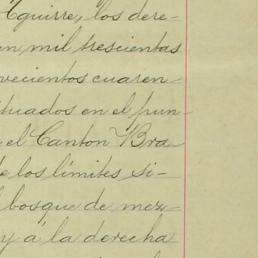 Aguirre, los dere-
en, mil trescientas
vecientos cuaren-
tuados en el pun-
el Canton Bra
e los límites si-
bosque de mez-
y á la derecha